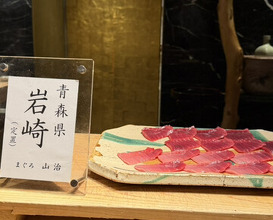 青森県
岩崎
(定置)
まぐろ 山治